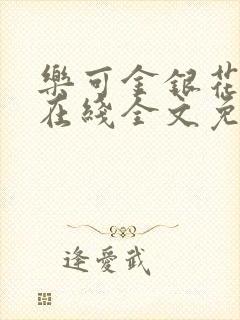 樂可金銀花
在綫全文免
逢愛武